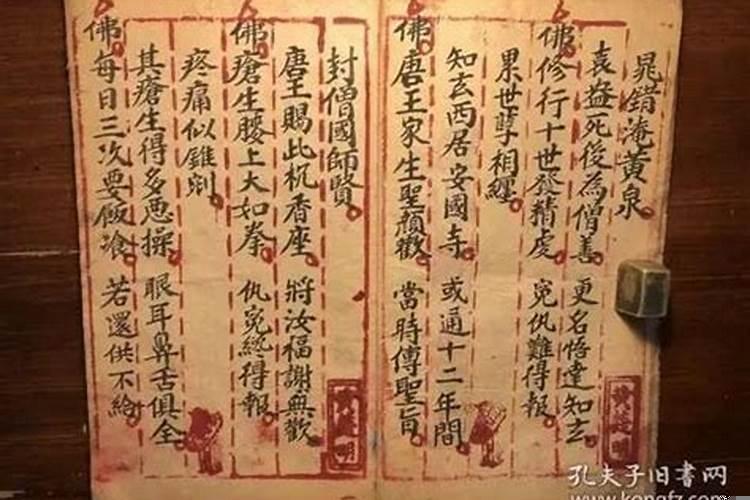 晁錯淹黄泉
袁盎死後為僧善 更名悟達知玄
佛修行十世發精虔 寃仇難得報
累世孽相纏
知玄西居安國寺 或通十二年間
佛唐王家生聖顏歡 當時傳聖旨
封僧國師賢
唐王賜此杌香座 將汝福謝無歡
佛瘡生腰上大如拳 仇寃終得報
疼痛似錐剜
其瘡生得多惡操 眼耳鼻舌俱全
佛每日三次要飯飡 若還供不給
孔夫子旧書网